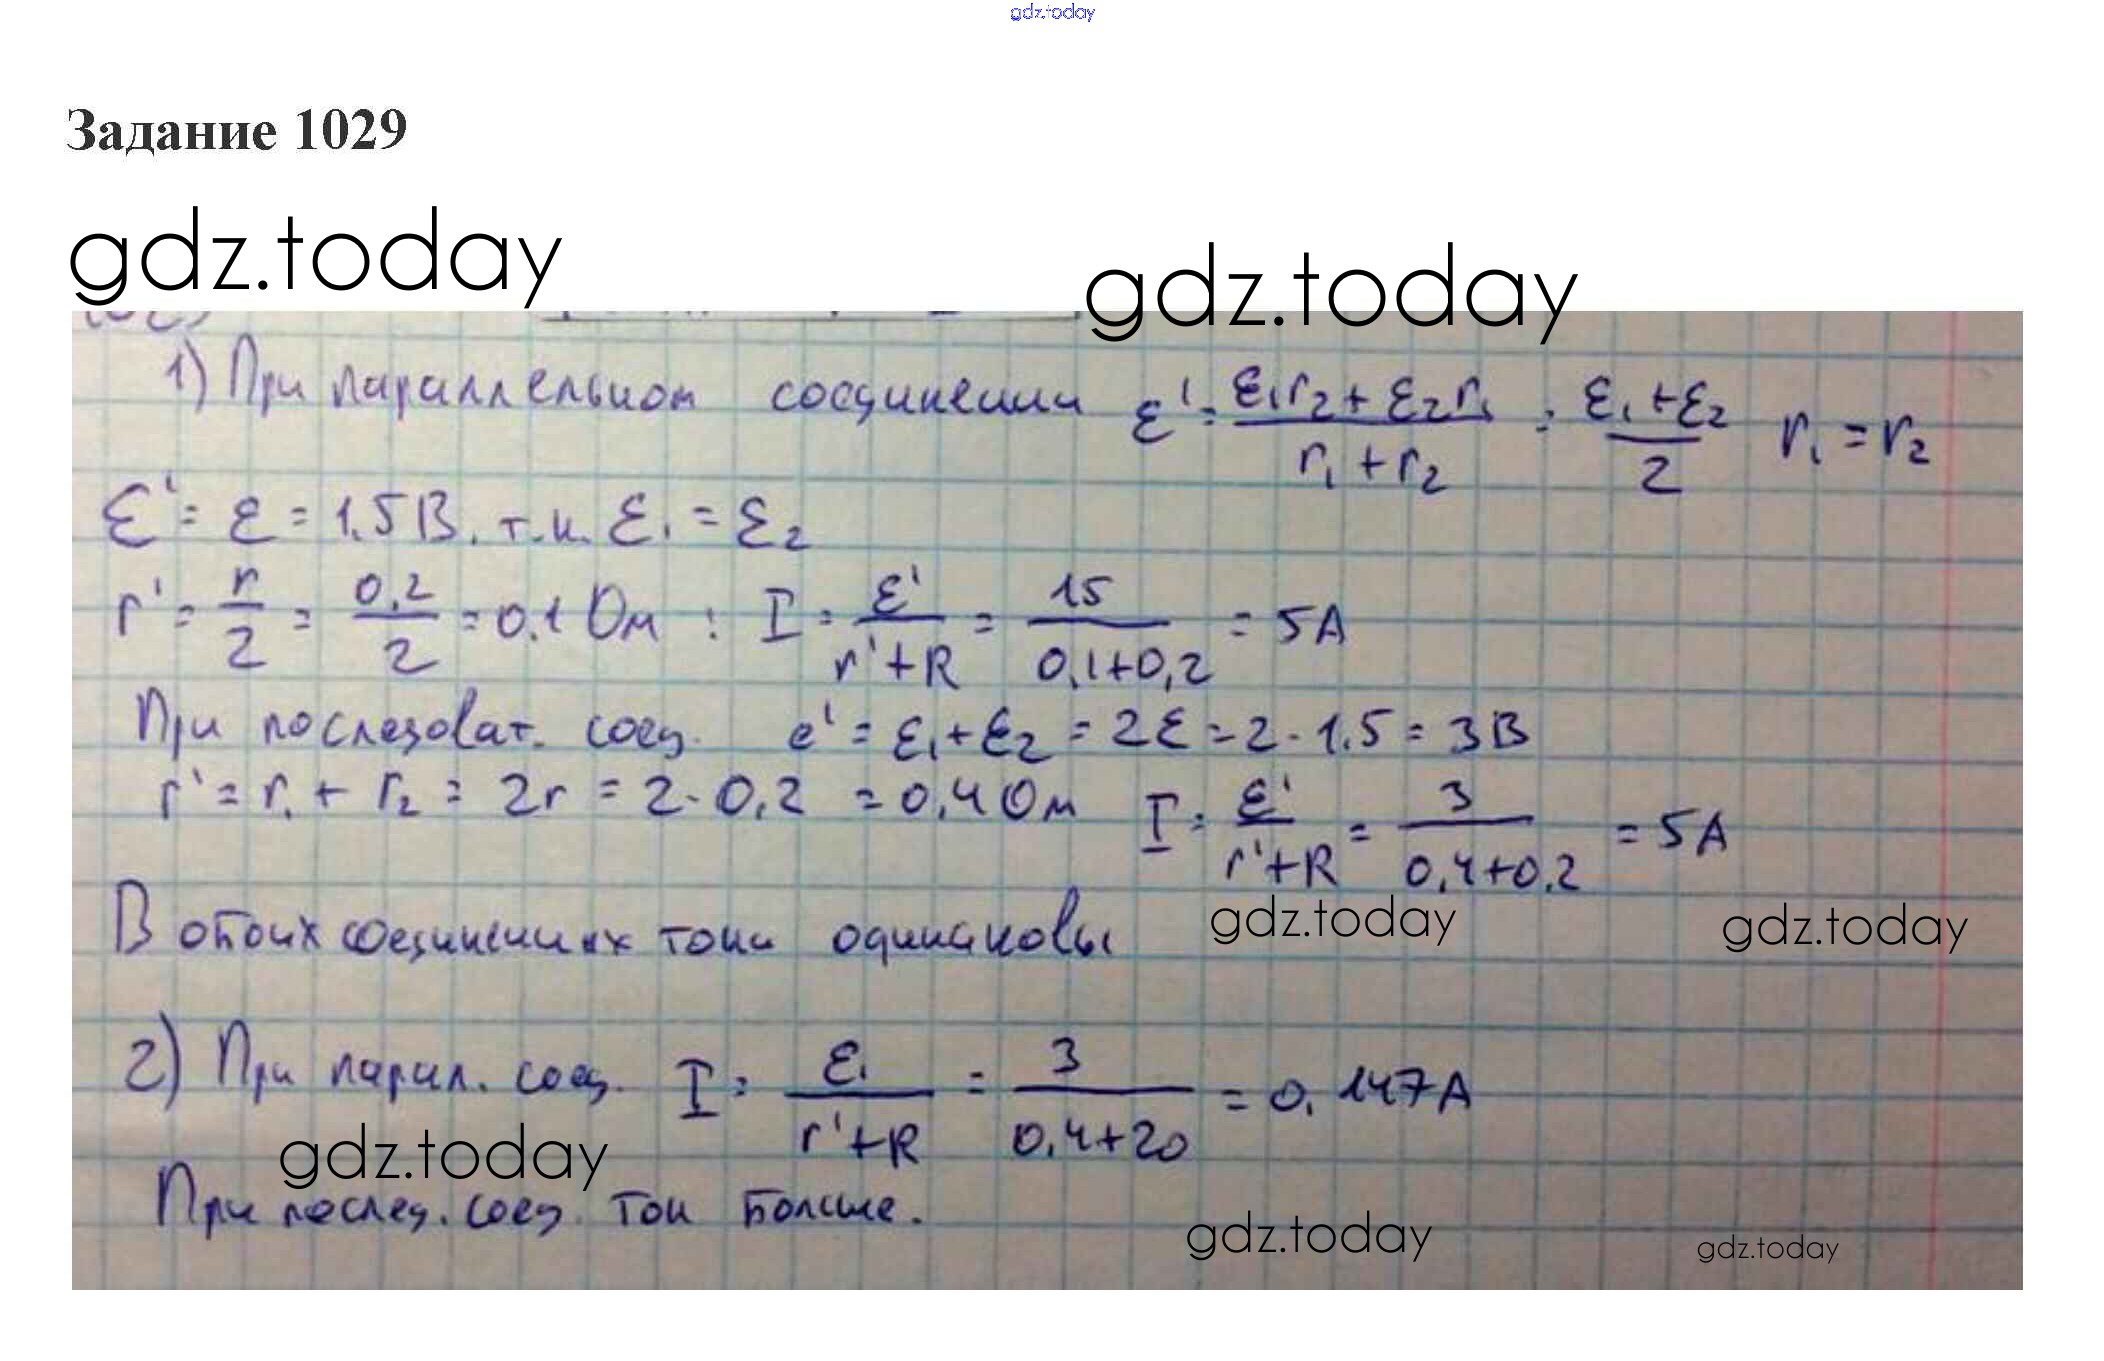 gdz.today
Задание 1029
gdz.today
gdz.today
1) При параллельном соединении ε' = ε₁r₂ + ε₂r₁ / r₁ + r₂ = ε₁ + ε₂ / 2 r₁ = r₂
ε' = ε = 1.5 В. т.к. ε₁ = ε₂
r' = r / 2 = 0,2 / 2 = 0.1 Ом ; I = ε' / r' + R = 15 / 0,1+0,2 = 5А
При последоват. соед. e' = ε₁ + ε₂ = 2ε = 2 · 1.5 = 3В
r' = r₁ + r₂ = 2r = 2 · 0,2 = 0,4 Ом I = ε' / r' + R = 3 / 0,4+0,2 = 5А
В обоих соединениях токи одинаковы
gdz.today
gdz.today
2) При парал. соед. I = ε₁ / r' + R = 3 / 0,4+20 = 0.147А
gdz.today
При послед. соед. ток больше.
gdz.today
gdz.today